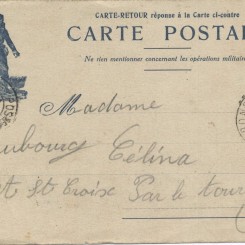 CARTE-RETOUR réponse à la Carte ci-contre
CARTE POSTAL
Ne rien mentionner concernant les opérations militair
Madame
aubourg Célina
St Croix Par le tour